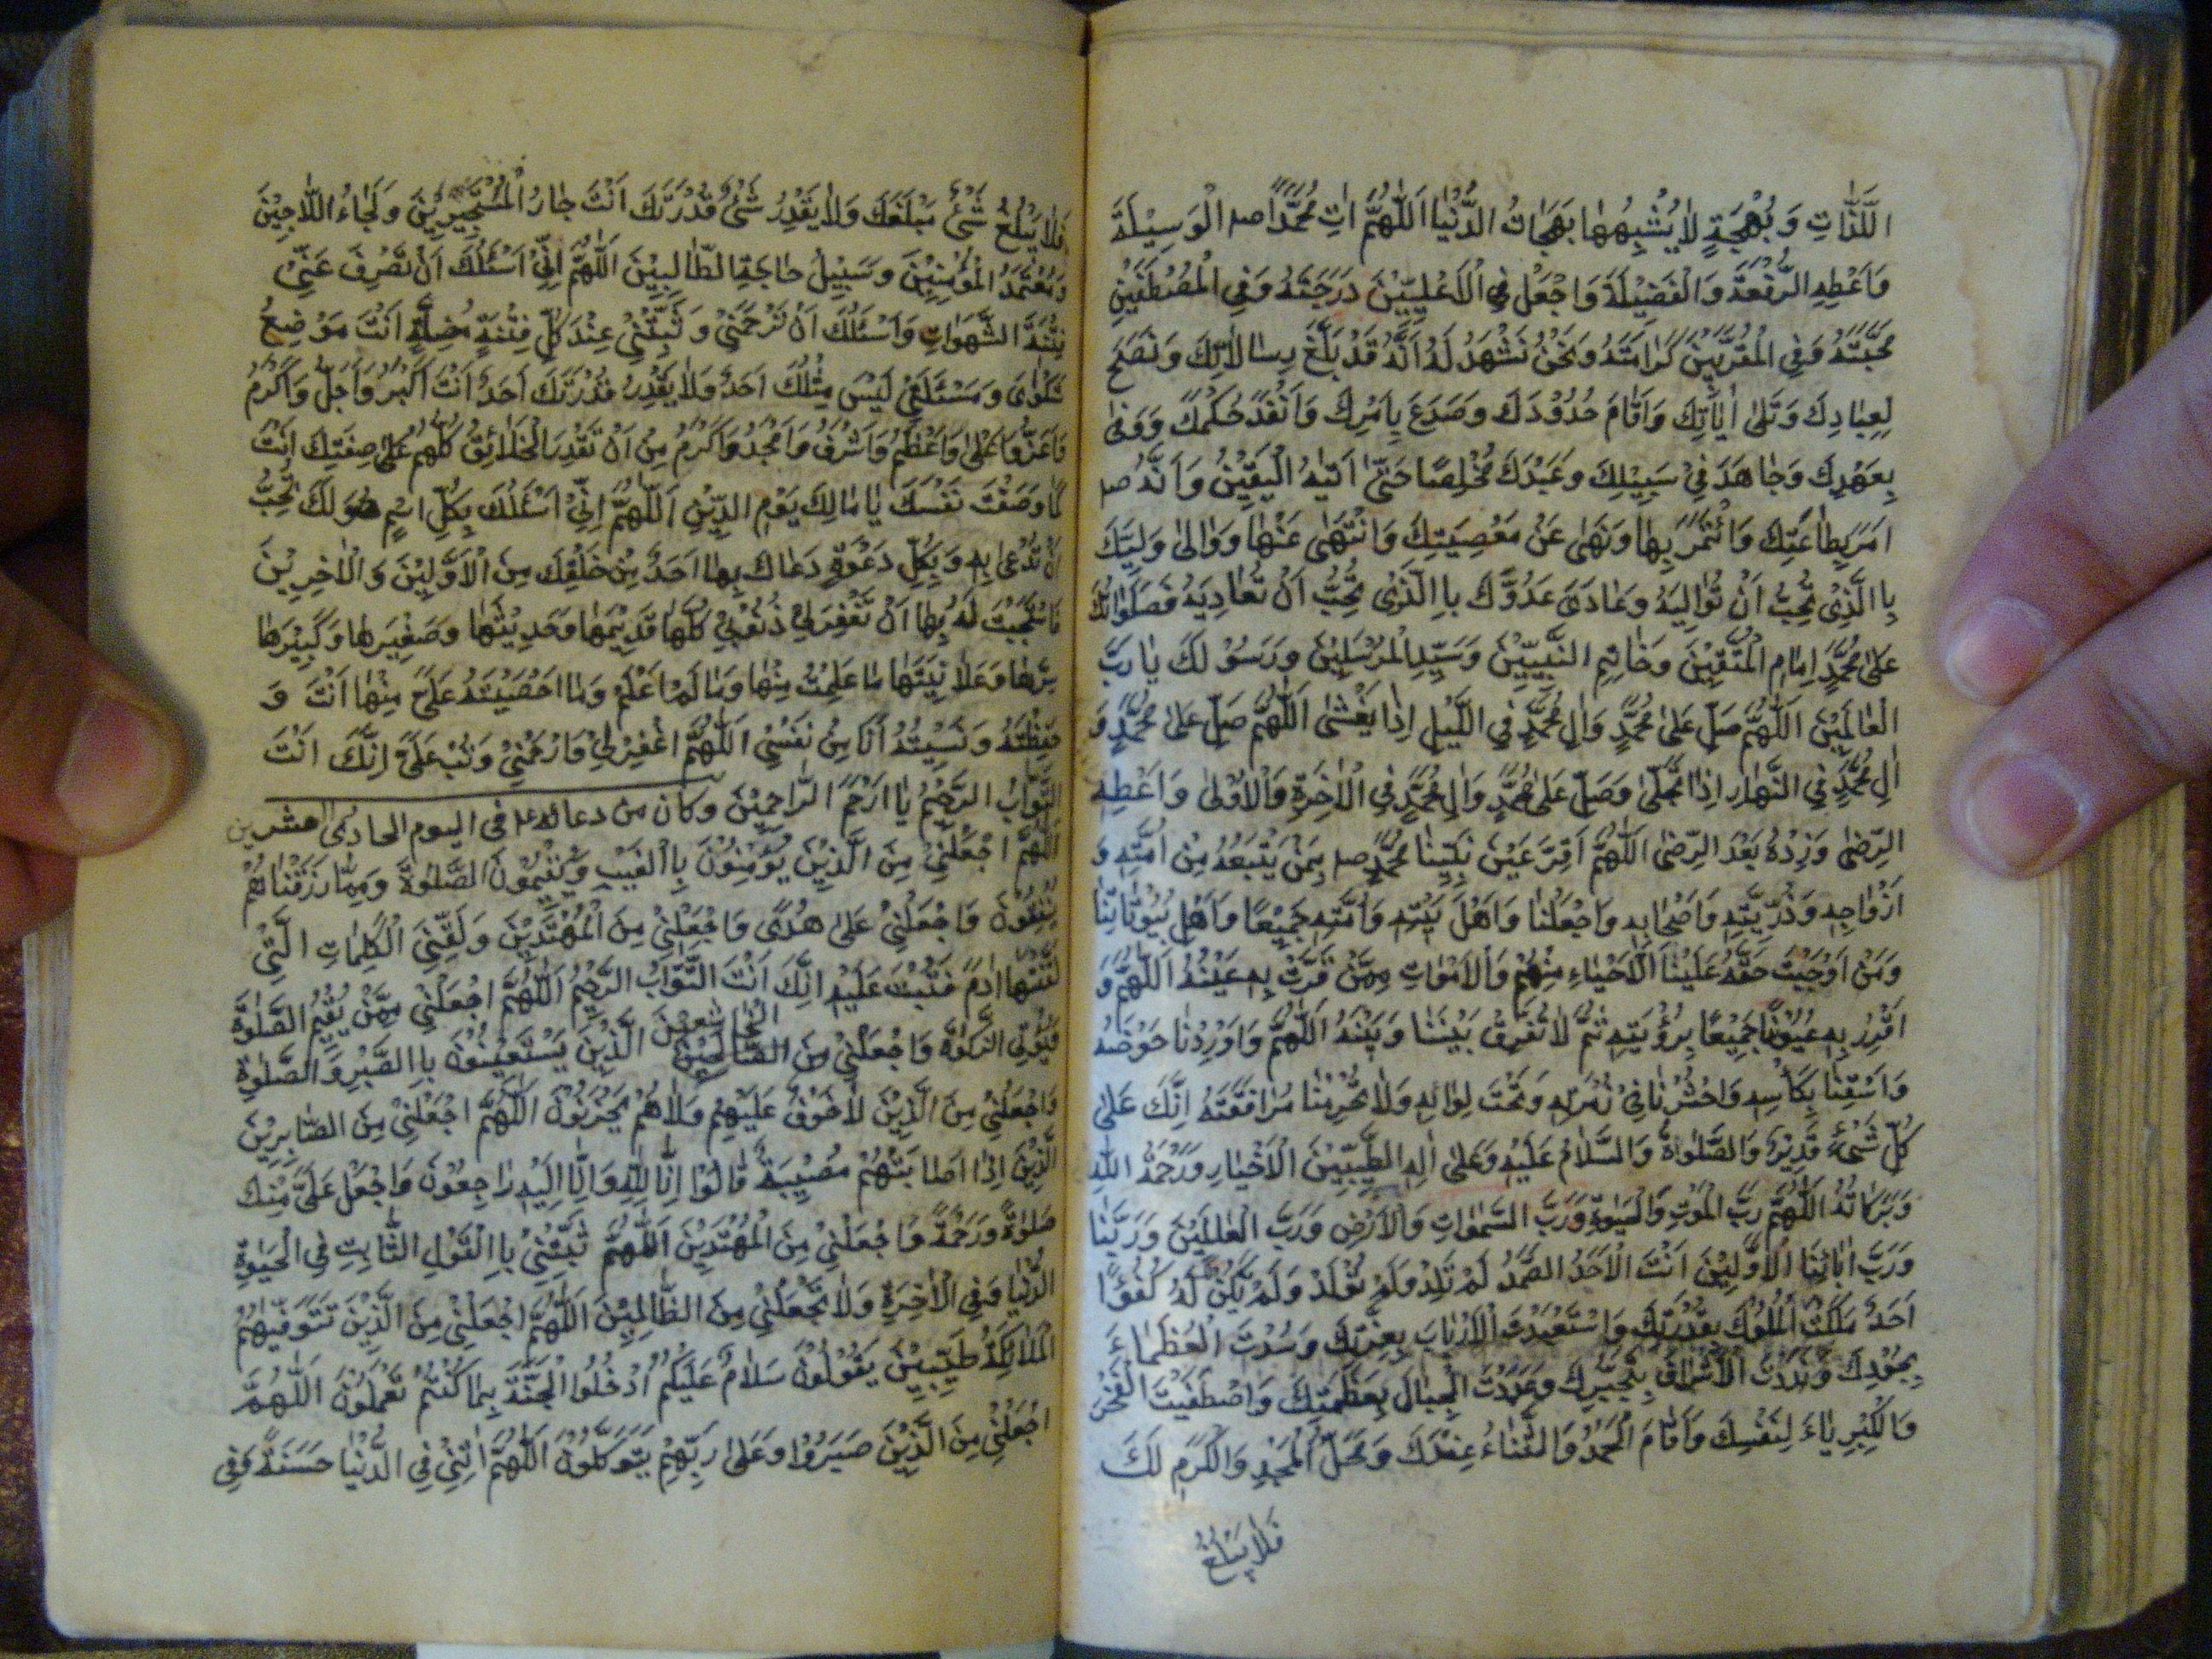 اللَّذَّاتِ وَبُهْجَةٍ لَا يُشْبِهُهَا بَهَجَاتُ الدُّنْيَا اَللّٰهُمَّ اٰتِ مُحَمَّدًا صم الْوَسِيْلَةَ
وَاَعْطِهِ الرِّفْعَةَ وَالْفَضِيْلَةَ وَاجْعَلْ فِي الْاَعْلِيِّيْنَ دَرَجَتَهُ وَفِي الْمُصْطَفَيْنَ
مَحَبَّتَهُ وَفِي الْمُقَرَّبِيْنَ كَرَامَتَهُ وَنَحْنُ نَشْهَدُ لَهُ اَنَّهُ قَدْ بَلَّغَ رِسَالَاتِكَ وَنَصَحَ
لِعِبَادِكَ وَتَلَىٰ اٰيَاتِكَ وَاَقَامَ حُدُوْدَكَ وَصَدَعَ بِاَمْرِكَ وَاَنْفَذَ حُكْمَكَ وَوَفَىٰ
بِعَهْدِكَ وَجَاهَدَ فِيْ سَبِيْلِكَ وَعَبَدَكَ مُخْلِصًا حَتّىٰ اَتٰيهُ الْيَقِيْنُ وَاَنَّهُ صم
اَمَرَ بِطَاعَتِكَ وَائْتَمَرَ بِهَا وَنَهَىٰ عَنْ مَعْصِيَتِكَ وَانْتَهَىٰ عَنْهَا وَوَالىٰ وَلِيَّكَ
بِالَّذِيْ تُحِبُّ اَنْ تُوَالِيَهُ وَعَادَىٰ عَدُوَّكَ بِالَّذِىْ تُحِبُّ اَنْ تُعَادِيَهُ فَصَلَوَاتُكَ
عَلىٰ مُحَمَّدٍ اِمَامِ الْمُتَّقِيْنَ وَخَاتِمِ النَّبِيِّيْنَ وَسَيِّدِ الْمُرْسَلِيْنَ وَرَسُوْلِكَ يَا رَبَّ
الْعَالَمِيْنَ اَللّٰهُمَّ صَلِّ عَلىٰ مُحَمَّدٍ وَاٰلِ مُحَمَّدٍ فِي اللَّيْلِ اِذَا يَغْشىٰ اَللّٰهُمَّ صَلِّ عَلىٰ مُحَمَّدٍ وَ
اٰلِ مُحَمَّدٍ فِي النَّهَارِ اِذَا تَجَلّىٰ وَصَلِّ عَلىٰ مُحَمَّدٍ وَاٰلِ مُحَمَّدٍ فِي الْاٰخِرَةِ وَالْاُوْلىٰ وَاَعْطِهِ
الرِّضىٰ وَزِدْهُ بَعْدَ الرِّضىٰ اَللّٰهُمَّ اَقِرَّ عَيْنَ نَبِيِّنَا مُحَمَّدٍ صم بِمَنْ يَتْبَعُهُ مِنْ اُمَّتِهِ وَ
اَزْوَاجِهِ وَذُرِّيَّتِهِ وَاَصْحَابِهِ وَاجْعَلْنَا وَاَهْلَ بَيْتِهِ وَاُمَّتِهِ جَمِيْعًا وَاَهْلَ بُيُوْتَاتِنَا
وَمَنْ اَوْجَبْتَ حَقَّهُ عَلَيْنَا الْاَحْيَاءِ مِنْهُمْ وَالْاَمْوَاتِ مِمَّنْ قَرَّتْ بِهِ عَيْنُهُ اَللّٰهُمَّ وَ
اقْرِرْ بِهِ عُيُوْنَا جَمِيْعًا بِرُؤْيَتِهِ ثُمَّ لَا تُفَرِقْ بَيْنَنَا وَبَيْنَهُ اَللّٰهُمَّ وَاَوْرِدْنَا حَوْضَهُ
وَاَسْقِنَا بِكَأْسِهِ وَاحْشُرْنَا فِيْ زُمْرَتِهِ وَتَحْتَ لِوَائِهِ وَلَا تَحْرِمْنَا مُرَافَقَتَهُ اِنَّكَ عَلىٰ
كُلِّ شَىْءٍ قَدِيْرٌ وَالصَّلَوٰةُ وَالسَّلَامُ عَلَيْهِ وَعَلىٰ اٰلِهِ الطَّيِّبِيْنَ الْاَخْيَارِ وَرَحْمَةُ اللهِ
وَبَرَكَاتُهُ اَللّٰهُمَّ رَبَّ الْمَوْتِ وَالْحَيٰوةِ وَرَبَّ السَّمٰوَاتِ وَالْاَرْضِ وَرَبَّ الْعَالَمِيْنَ وَرَبَّنَا
وَرَبَّ اٰبَائِنَا الْاَوَّلِيْنَ اَنْتَ الْاَحَدُ الصَّمَدُ لَمْ تَلِدْ وَلَمْ تُوْلَدْ وَلَمْ يَكُنْ لَهُ كُفُوًا
اَحَدٌ مَلَكْتَ الْمُلُوْكَ بِقُدْرَتِكَ وَاسْتَعْبَدْتَ الْاَرْبَابَ بِعِزَّتِكَ وَسُدْتَ الْعُظَمَاءَ
بِجُوْدِكَ وَبَدَّدْتَ الْاَشْرَافَ بِتَجَبُّرِكَ وَهَدَدْتَ الْجِبَالَ بِعَظَمَتِكَ وَاصْطَفَيْتَ الْفَخْرَ
وَالْكِبْرِيَاءَ لِنَفْسِكَ وَاَقَامَ الْحَمْدُ وَالثَّنَاءُ عِنْدَكَ وَمَحَلُّ الْمَجْدِ وَالْكَرَمِ لَكَ
فَلَا يَبْلُغُ
فَلَا يَبْلُغُ شَىْءٌ مَبْلَغَكَ وَلَا يَقْدِرُ شَىْءٌ قُدْرَتَكَ اَنْتَ جَارُ الْمُسْتَجِيْرِيْنَ وَلَجَاءُ اللَّاجِيْنَ
وَمُعْتَمَدُ الْمُؤْمِنِيْنَ وَسَبِيْلُ حَاجَةِ الطَّالِبِيْنَ اَللّٰهُمَّ اِنِّيْ اَسْئَلُكَ اَنْ تَصْرِفَ عَنِّيْ
فِتْنَةَ الشَّهَوَاتِ وَاَسْئَلُكَ اَنْ تَرْحَمَنِيْ وَتُثَبِّتَنِيْ عِنْدَ كُلِّ فِتْنَةٍ مُضِلَّةٍ اَنْتَ مَوْضِعُ
شَكْوَاىَ وَمَسْئَلَتِيْ لَيْسَ مِثْلَكَ اَحَدٌ وَلَا يَقْدِرُ قُدْرَتَكَ اَحَدٌ اَنْتَ اَكْبَرُ وَاَجَلُّ وَاَكْرَمُ
وَاَعَزُّ وَاَعْلىٰ وَاَعْظَمُ وَاَشْرَفُ وَاَمْجَدُ وَاَكْرَمُ مِنْ اَنْ تَقْدِرَ الْخَلَائِقُ كُلُّهُمْ عَلىٰ صِفَتِكَ اَنْتَ
كَمَا وَصَفْتَ نَفْسَكَ يَا مَالِكَ يَوْمِ الدِّيْنِ اَللّٰهُمَّ اِنِّيْ اَسْئَلُكَ بِكُلِّ اسْمٍ هُوَ لَكَ تُحِبُّ
اَنْ تُدْعىٰ بِهِ وَبِكُلِّ دَعْوَةٍ دَعَاكَ بِهَا اَحَدٌ مِنْ خَلْقِكَ مِنَ الْاَوَّلِيْنَ وَالْاٰخِرِيْنَ
فَاسْتَجَبْتَ لَهُ بِهَا اَنْ تَغْفِرَلِيْ ذُنُوْبِيْ كُلَّهَا قَدِيْمَهَا وَحَدِيْثَهَا وَصَغِيْرَهَا وَكَبِيْرَهَا
سِرَّهَا وَعَلَانِيَتَهَا مَا عَلِمْتُ مِنْهَا وَمَا لَمْ اَعْلَمْ وَمَا اَحْصَيْتَهُ عَلَىَّ مِنْهَا اَنْتَ وَ
حَفِظْتَهُ وَنَسِيْتُهُ اَنَا مِنْ نَفْسِيْ اَللّٰهُمَّ اغْفِرْلِيْ وَارْحَمْنِيْ وَتُبْ عَلَىَّ اِنَّكَ اَنْتَ
التَّوَّابُ الرَّحِيْمُ يَا اَرْحَمَ الرَّاحِمِيْنَ وكان من دعائه ع في اليوم الحادي العشرين
اَللّٰهُمَّ اجْعَلْنِيْ مِنَ الَّذِيْنَ يُؤْمِنُوْنَ بِالْغَيْبِ وَيُقِيْمُوْنَ الصَّلٰوةَ وَمِمَّا رَزَقْنَاهُمْ
يُنْفِقُوْنَ وَاجْعَلْنِيْ عَلىٰ هُدًى وَاجْعَلْنِيْ مِنَ الْمُهْتَدِيْنَ وَلَقِّنِيْ الْكَلِمَاتِ الَّتِيْ
لَقَّنْتَهَا اٰدَمَ فَتُبْتَ عَلَيْهِ اِنَّكَ اَنْتَ التَّوَّابُ الرَّحِيْمُ اَللّٰهُمَّ اجْعَلْنِيْ مِمَّنْ يُقِيْمُ الصَّلٰوةَ
وَيُؤْتِي الزَّكٰوةَ وَاجْعَلْنِيْ مِنَ الصَّالِحِيْنَ الْخَاشِعِيْنَ الَّذِيْنَ يَسْتَعِيْنُوْنَ بِالصَّبْرِ وَالصَّلٰوةِ
وَاجْعَلْنِيْ مِنَ الَّذِيْنَ لَا خَوْفٌ عَلَيْهِمْ وَلَا هُمْ يَحْزَنُوْنَ اَللّٰهُمَّ اجْعَلْنِيْ مِنَ الصَّابِرِيْنَ
الَّذِيْنَ اِذَا اَصَابَتْهُمْ مُصِيْبَةٌ قَالُوْا اِنَّا لِلّٰهِ وَاِنَّا اِلَيْهِ رَاجِعُوْنَ وَاجْعَلْ عَلَىَّ مِنْكَ
صَلٰوةً وَرَحْمَةً وَاجْعَلْنِيْ مِنَ الْمُهْتَدِيْنَ اَللّٰهُمَّ ثَبِّتْنِيْ بِالْقَوْلِ الثَّابِتِ فِي الْحَيٰوةِ
الدُّنْيَا وَفِي الْاٰخِرَةِ وَلَا تَجْعَلْنِيْ مِنَ الظَّالِمِيْنَ اَللّٰهُمَّ اجْعَلْنِيْ مِنَ الَّذِيْنَ تَتَوَفّٰيهُمُ
الْمَلَائِكَةُ طَيِّبِيْنَ يَقُوْلُوْنَ سَلَامٌ عَلَيْكُمُ ادْخُلُوا الْجَنَّةَ بِمَا كُنْتُمْ تَعْمَلُوْنَ اَللّٰهُمَّ
اجْعَلْنِيْ مِنَ الَّذِيْنَ صَبَرُوْا وَعَلىٰ رَبِّهِمْ يَتَوَكَّلُوْنَ اَللّٰهُمَّ اٰتِنِيْ فِي الدُّنْيَا حَسَنَةً وَفِي